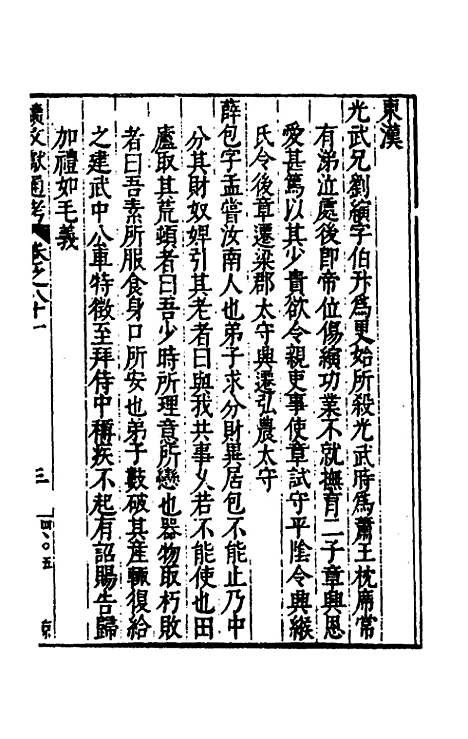 東漢
光武兄劉縯字伯升爲更始所殺光武時爲蕭王枕席常
有涕泣處後即帝位傷縯功業不就撫育二子章興恩
愛甚篤以其少貴欲令親吏事使章試守平陰令興緱
氏令後章遷梁郡太守興遷弘農太守
薛包字孟嘗汝南人也弟子求分財異居包不能止乃中
分其財奴婢引其老者曰與我共事久若不能使也田
廬取其荒頓者曰吾少時所理意所戀也器物取朽敗
者曰吾素所服食身口所安也弟子數破其産輒復給
之建武中公車特徵至拜侍中稱疾不起有詔賜告歸
加禮如毛義
續文獻通考 卷之八十一 三 四〇五